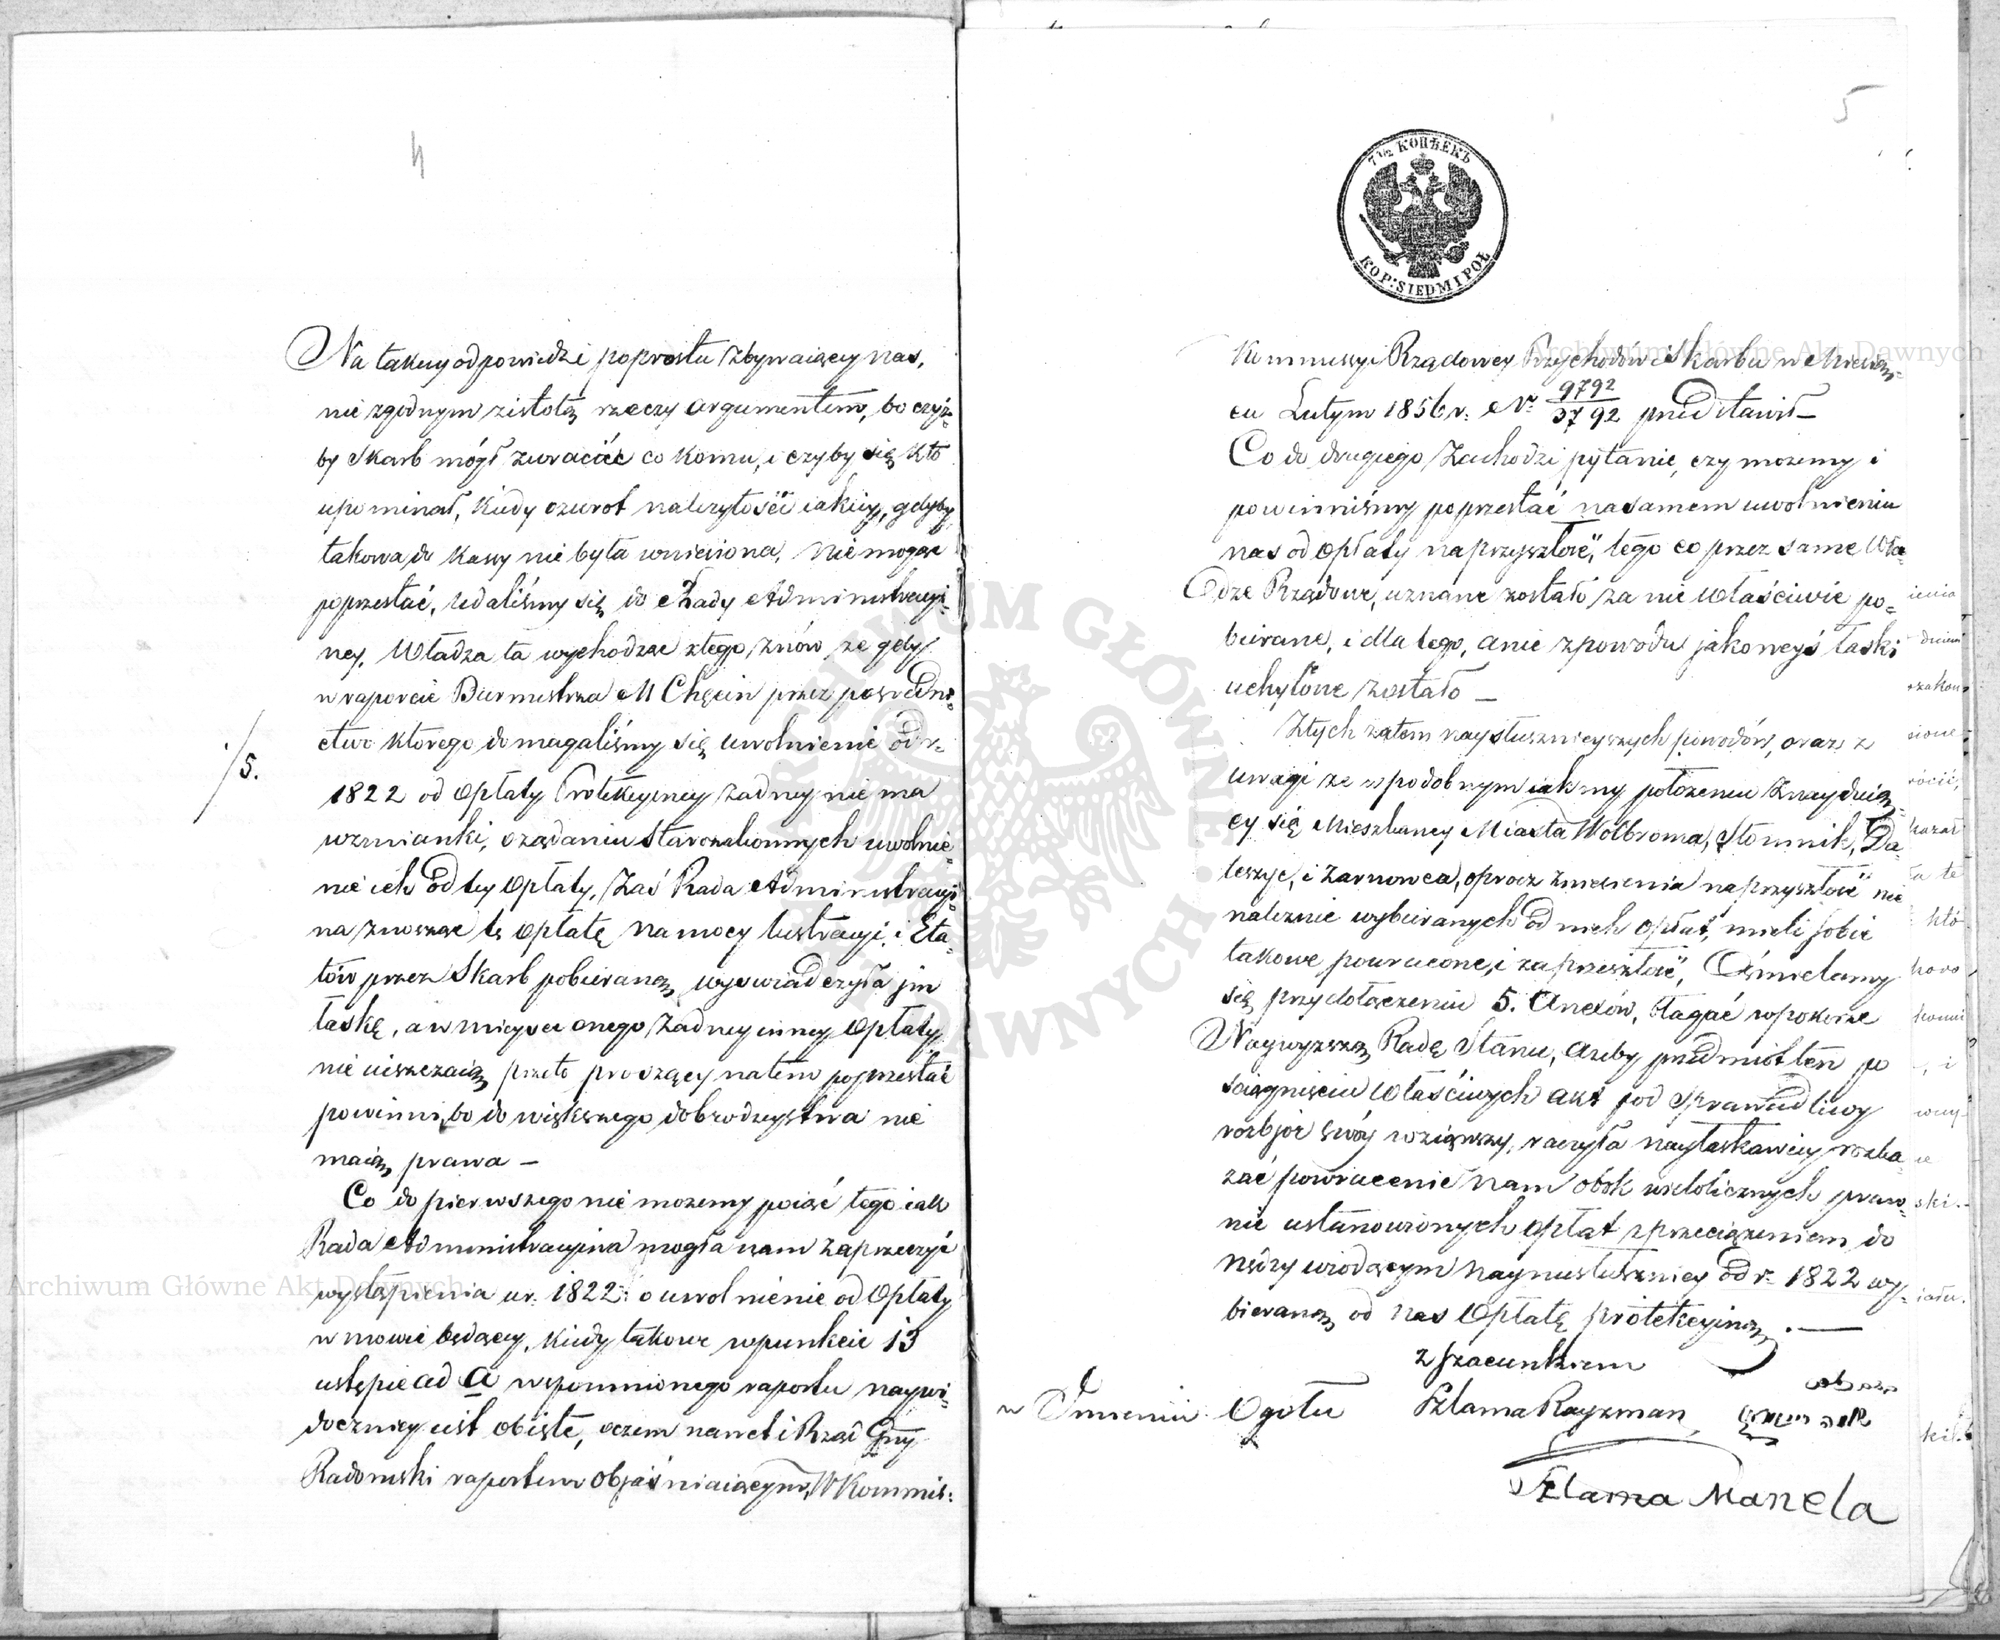 4
Na takiey odpowiedzi poprostu zbywaiącey nas,
nie zgodnym z istotą rzeczy argumentem, bo czyż=
by Skarb mógł zwracać co komu, i czyby się kto
upominał, kiedy o zwrot należytości iakiey, gdyby
takowa do Kassy nie była wniesiona, nie mogąc
poprzestać, udaliśmy się do Rady Administracyi=
ney, Władza ta wychodząc z tego znów, że gdy
w raporcie Burmistrza M Chęcin przez pośredni=
ctwo którego domagaliśmy się uwolnienie od r.
1822 od opłaty Protekcyiney żadney nie ma
wzmianki, o żądaniu Starozakonnych uwolnie=
nie ich od tey opłaty, zaś Rada Administracyi=
na znosząc tę opłatę na mocy lustracyi i Eta=
tów przez Skarb pobieraną wyświadczyła jm
łaskę, a w mieysce onego żadney inney opłaty,
nie uiszczaią, przeto proszący na tem poprzestać
powinni, bo do większego dobrodzieystwa nie
maią prawa –
/5.
Co do pierwszego nie możemy poiąć tego iak
Rada Administracyina mogła nam zaprzeczyć
wystąpienia w r. 1822: o uwolnienie od opłaty
w mowie będącey, kiedy takowe w punkcie 13
ustępie ad a wspomnionego raportu naywi=
doczniey iest obięte, oczem nawet i Rząd Gny
Radomski raportem objaśniaiącym, W Kommis=
5
7 1/2 КОПѢЕКЪ
KOP: SIEDM I PÓŁ
Kommissyi Rządowey Przychodów i Skarbu w Miesią=
cu Lutym 1856 r. Nr 9792/3792 przedstawił –
Co do drugiego zachodzi pytanie, czy możemy i
powinniśmy poprzestać na samem uwolnieniu
nas od opłaty na przyszłość, tego co przez same Wła=
dze Rządowe, uznane zostało za nie właściwie po=
bierane, i dla tego, a nie z powodu jakoweyś łaski
uchylone zostało –
Z tych zatem naysłusznieyszych powodów, oraz z
uwagi że w podobnym iak my położeniu znayduią=
cy się Mieszkańcy Miasta Wolbroma, Słomnik, Da=
leszyc, i Żarnowca, oprócz zniesienia na przyszłość nie
należnie wybieranych od nich opłat, mieli sobie
takowe powrócone, i za przeszłość, Ośmielamy
się przy dołączeniu 5. Anexów, błagać w pokorze
Naywyższą Radę Stanu, ażeby przedmiot ten po
ściągnięciu właściwych akt pod sprawiedliwy
rozbjór swóy wziąwszy, raczyła nayłaskawiey rozka=
zać powrócenie nam obok widocznych praw=
nie ustanowionych opłat z przeciążeniem do
nędzy wiodącym nayniesłuszniey od r. 1822 wy=
bieraną od nas Opłatę protekcyiną. –
z szacunkiem
w Imieniu Ogółu Szlama Rayzman
Szlama Manela